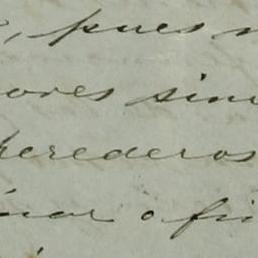 , pues n
ores sin
herederos
inar o fi